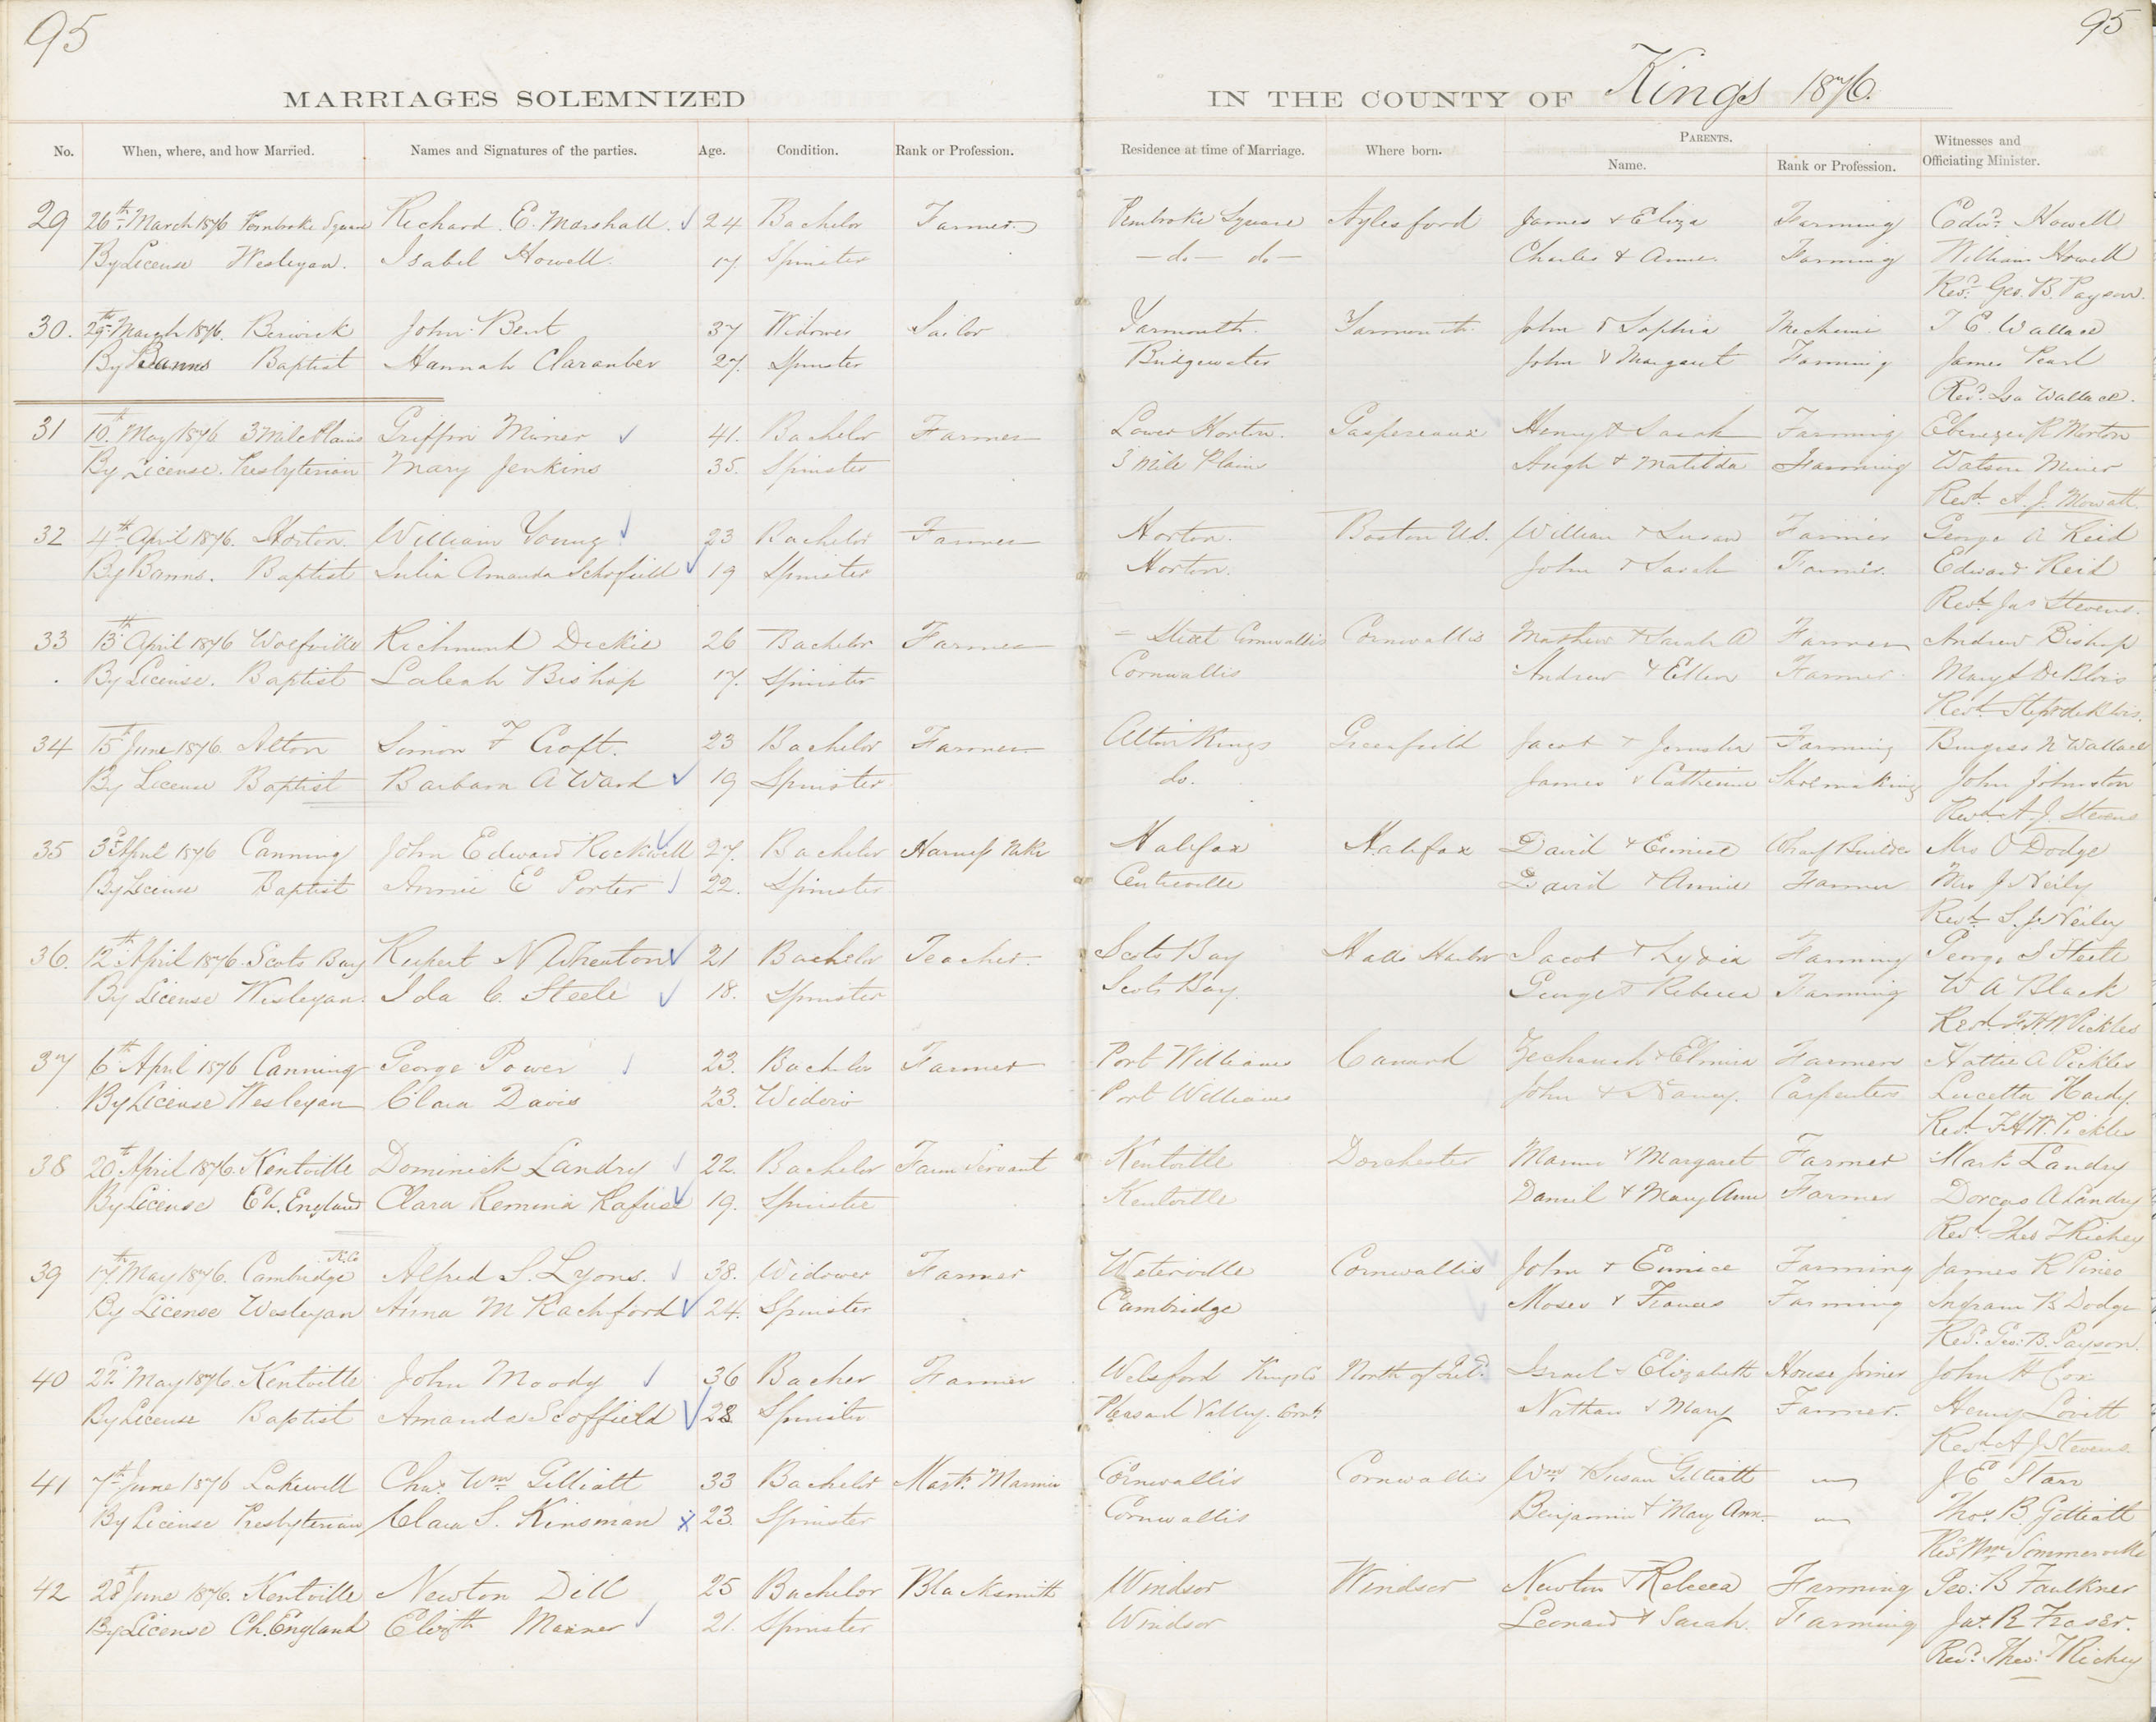 95
95
MARRIAGES SOLEMNIZED
IN THE COUNTY OF Kings 1876.
No. When, where, and how Married. Names and Signatures of the parties. Age. Condition. Rank or Profession. Residence at time of Marriage. Where born. PARENTS. Name. Rank or Profession. Witnesses and Officiating Minister.
29 26th March 1876 Pembroke Square Richard E. Marshall. 24 Bachelor Farmer Pembroke Square Aylesford James & Eliza Farming Edwd. Howell
By License Wesleyan. Isabel Howell 17 Spinster — do — do — Charles & Anne. Farming William Howell
Revd. Geo. B. Payson.
30. 29th March 1876. Berwick John Bent 37 Widower Sailor Yarmouth. Yarmouth. John & Sophia Mechanic T E. Wallace
By Banns Baptist Hannah Claranber 27. Spinster Bridgewater John & Margaret Farming James Pearl
Revd. Isa Wallace.
31 10th May 1876 3 Mile Plains Griffin Miner 41. Bachelor Farmer Lower Horton. Gaspereaux Henry & Sarah Farming Ebenezer R Morton
By License. Presbyterian Mary Jenkins 35. Spinster 3 Mile Plain Hugh & Matilda Farming Watson Miner
Revd. A. J. Mowatt.
32 4th April 1876. Horton. William Young 23 Bachelor Farmer Horton. Boston U.S. William & Susan Farmer George A Reid
By Banns. Baptist Julia Amanda Schofield 19 Spinster Horton. John & Sarah Farmer. Edward Reid
Revd. Jas Stevens.
33 13th April 1876 Wolfville Richmond Dickie 26 Bachelor Farmer = Street Cornwallis Cornwallis Mathew & Sarah A Farmer Andrew Bishop
By License. Baptist Saleah Bishop 17. Spinster Cornwallis Andrew & Ellen Farmer. Mary S DeBlois
Revd. Step deBlois.
34 15th June 1876. Alton Simon F Croft. 23 Bachelor Farmer Alton Kings Greenfield Jacob & Jerusha Farming Burgess N Wallace
By License Baptist Barbara A Ward 19 Spinster do. James & Catherine Shoemaking John Johnston
Revd A. J. Stevens
35 3d April 1876 Canning John Edward Rockwell 27. Bachelor Harness Mkr Halifax Halifax David & Eunice Wharf Builder Mrs O Dodge
By License Baptist Annie E Porter 22. Spinster Centreville David & Annie Farmer Mrs J Neily
Revd. S. J. Neiley
36. 12th April 1876. Scots Bay Rupert N Wheaton 21 Bachelor Teacher. Scots Bay Halls Harbor Jacob & Lydia Farming George S Steele
By License Wesleyan. Ida C. Steele 18. Spinster Scots Bay. George & Rebecca Farming W A Black
Revd. F. H. W Pickles
37 6th April 1876 Canning George Power 23. Bachelor Farmer Port Williams Canard Zechariah & Elmira Farmers Hattie A Pickles
By License Wesleyan Clara Davis 23. Widow Port Williams John & Nancy. Carpenters Lucetta Hardy.
Revd. F. H. W. Pickles
38 20th April 1876. Kentville Dominick Landry 22. Bachelor Farm Servant Kentville Dorchester & Margaret Farmer Mark Landry
By License Ch. England Clara Remina Rafuse 19. Spinster Kentville Daniel & Mary Ann Farmer Dorcas A Landry
Revd. Theo T Richey
39 17th May 1876. Cambridge K. Co Alfred S. Lyons. 38. Widower Farmer Waterville Cornwallis John & Eunice Farming James R Pineo
By License Wesleyan Anna M Rachford 24. Spinster Cambridge Moses & Frances Farming Ingram B Dodge
Revd. Geo: B. Payson.
40 22d May 1876. Kentville John Moody 36 Bacher Farmer Welsford Kings Co North of Ireld. Israel & Elizabeth House Joiner John H Cox
By License Baptist Amanda Scoffield 28 Spinster Pleasant Valley. Corn: Nathan & Mary Farmer. Henry Lovitt
Revd A J Stevens
41 7th June 1876 Lakewell Chas. Wm Gilliatt 33 Bachelor Mastr. Marnier Cornwallis Cornwallis Wm & Susan Gilliatt — J E Starr
By License Presbyterian Clara S. Kinsman 23. Spinster Cornwallis Benjamin & Mary Ann. — Thos. B. Gilliatt
Revd Wm Sommerville
42 28th June 1876. Kentville Newton Dill 25 Bachelor Blacksmith Windsor Windsor Newton & Rebecca Farming Geo: B Faulkner
By License Ch. England Elizth Manner 21. Spinster Windsor Leonard & Sarah. Farming Jas. R Fraser.
Revd. Theo: T Richey